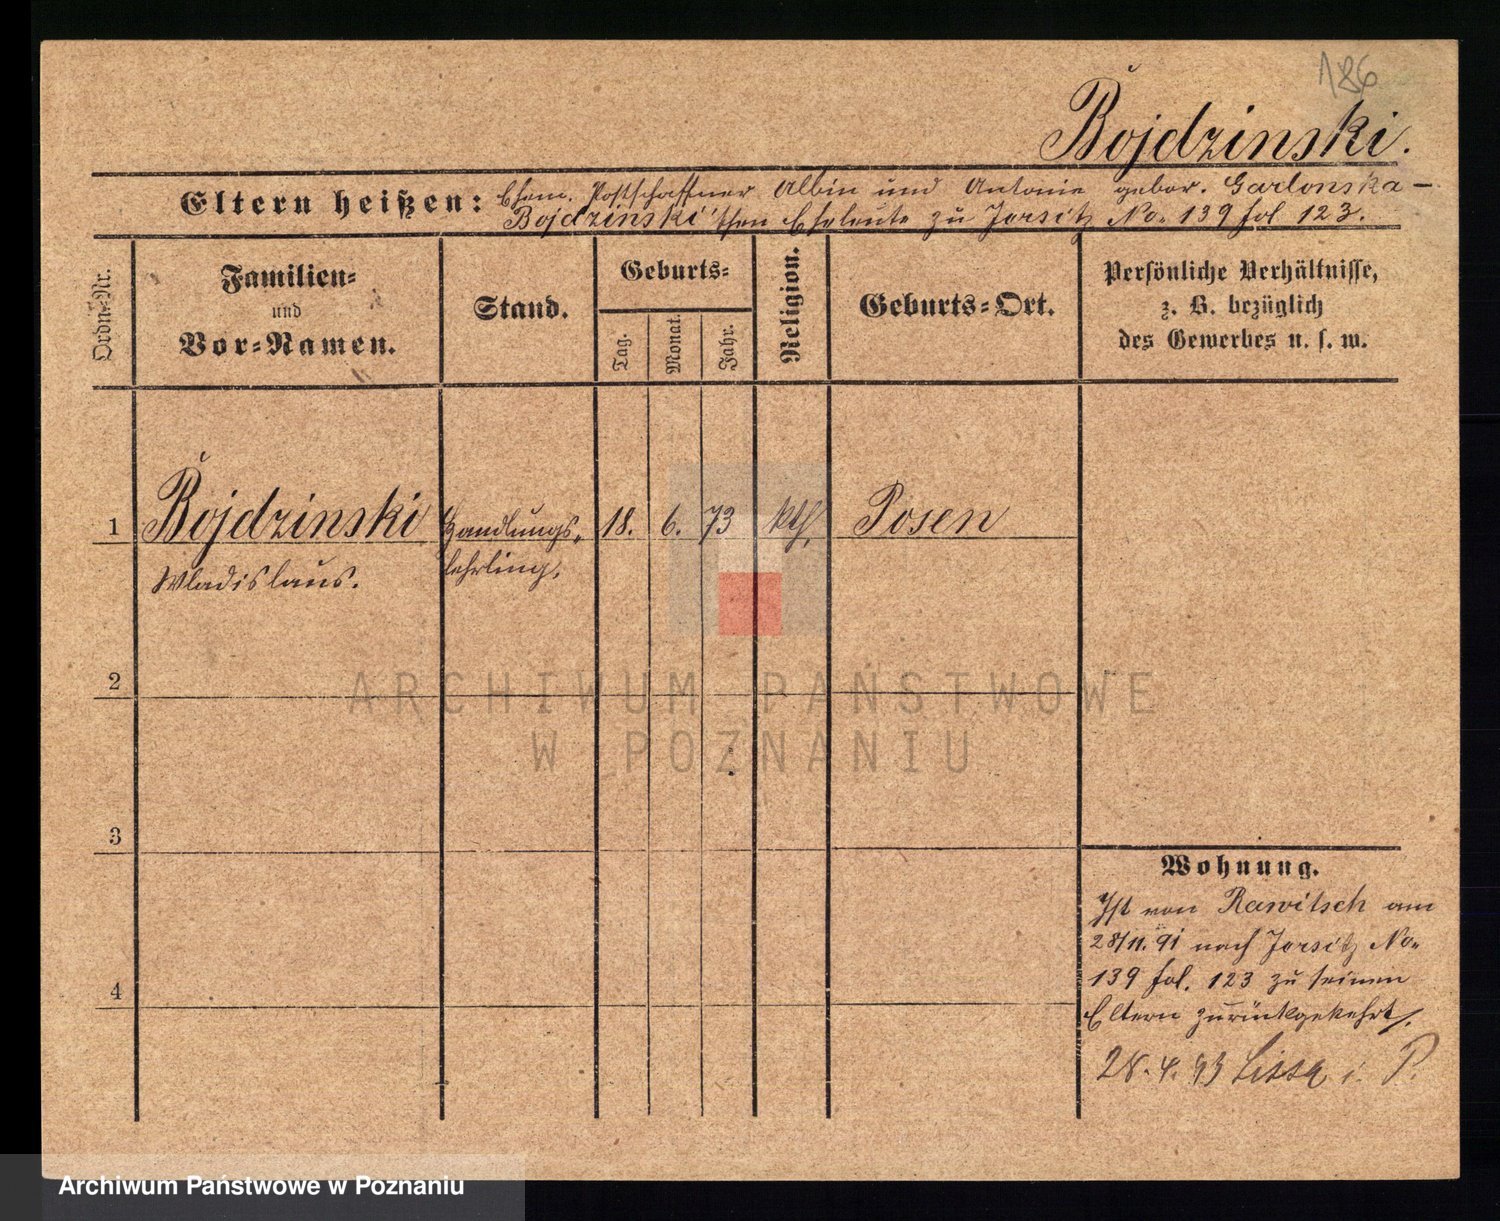 186
Bojdzinski.
Eltern heißen: Ehem. Postschaffner Albin und Antonie gebor. Garlonska –
Bojdzinski'schen Eheleute zu Jersitz No. 139 fol 123.
Ordn.-Nr.
Familien-
und
Vor-Namen.
Stand.
Geburts-
Tag.
Monat.
Jahr.
Religion.
Geburts-Ort.
Persönliche Verhältnisse,
z. B. bezüglich
des Gewerbes u. s. w.
1 Bojdzinski Handlungs- 18. 6. 73 kth. Posen
Wladislaus. lehrling.
2
3
4
Wohnung.
Ist von Rawitsch am
28/11. 91 nach Jersitz No.
139 fol. 123 zu seinen
Eltern zurückgekehrt.
28. 4. 93 Lissa i. P.
ARCHIWUM PAŃSTWOWE
W POZNANIU
Archiwum Państwowe w Poznaniu